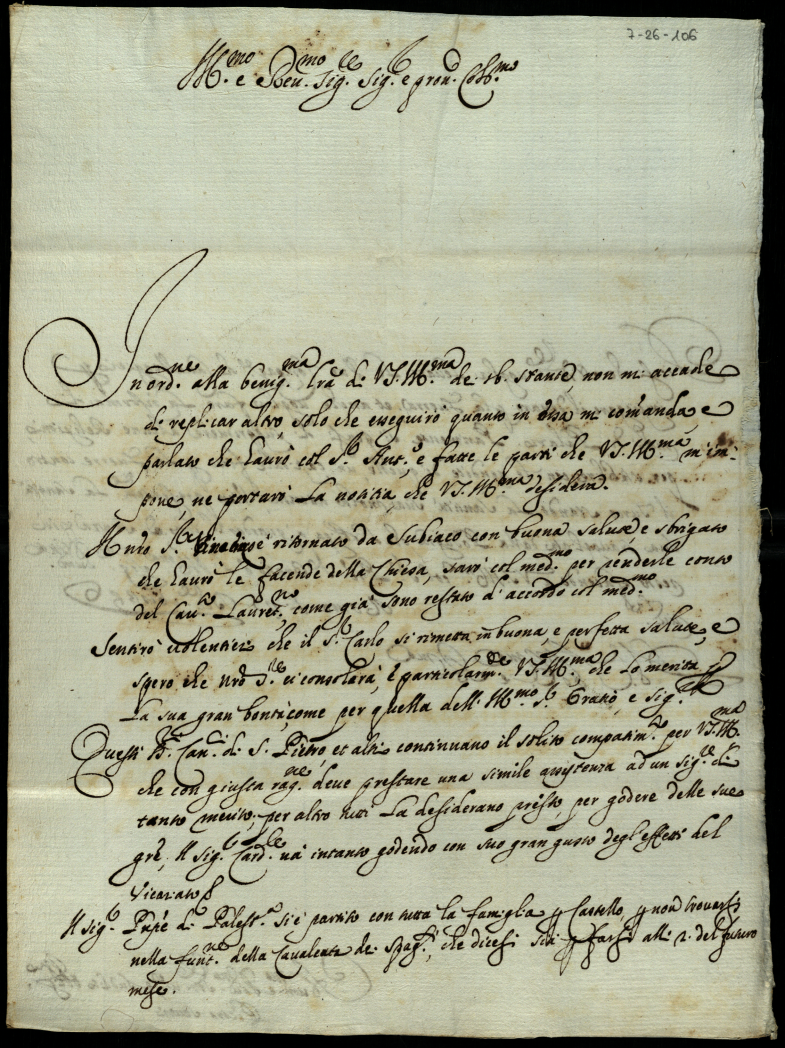 7-26-106
Ill.mo e Reu.mo Sig.re Sig.r e Pron. Col.mo
In ord.ne alla benig.ma lra di V.S. Ill.ma de 16. stante, non mi accade
di replicar altro, solo che eseguirò quanto in essa mi comanda, e
parlato che haurò col S.r Ant.o, e fatte le parti che V.S. Ill.ma m'im=
pone, ne portarò la notitia, che V.S. Ill.ma desidera.
Il nro S.r è ritornato da Subiaco con buona salute, e sbrigato
che haurò le facende della Chiesa, sarò col med.mo per renderle conto
del Can.co Lauret.no, come già sono restato d'accordo col med.mo
Sentirò uolentieri che il S.r Carlo si rimetta in buona, e perfetta salute, e
spero che nro S.re ci consolarà, e particolarm.te V.S. Ill.ma, che lo merita p
la sua gran bontà, come per quella dell'Ill.mo S.r Oratio, e Sig.ra
Questi SS.ri Can.ci di S. Pietro, et altri continuano il solito compatim.to per V.S. Ill.ma
che con giusta rag.ne deue prestare una simile assistenza ad un sig.re di
tanto merito, per altro tutti la desiderano presto, per godere delle sue
grẽ, Il Sig.r Card.le uà intanto godendo con suo gran gusto degl'effetti del
Vicariato
Il sig.r Pnpẽ di Palest.na si è partito con tutta la famiglia p Castello, p non trouarsi
nella funt.ne della Caualcata di Spag.a, che dicesi sia p farsi alli 2. del futuro
mese.